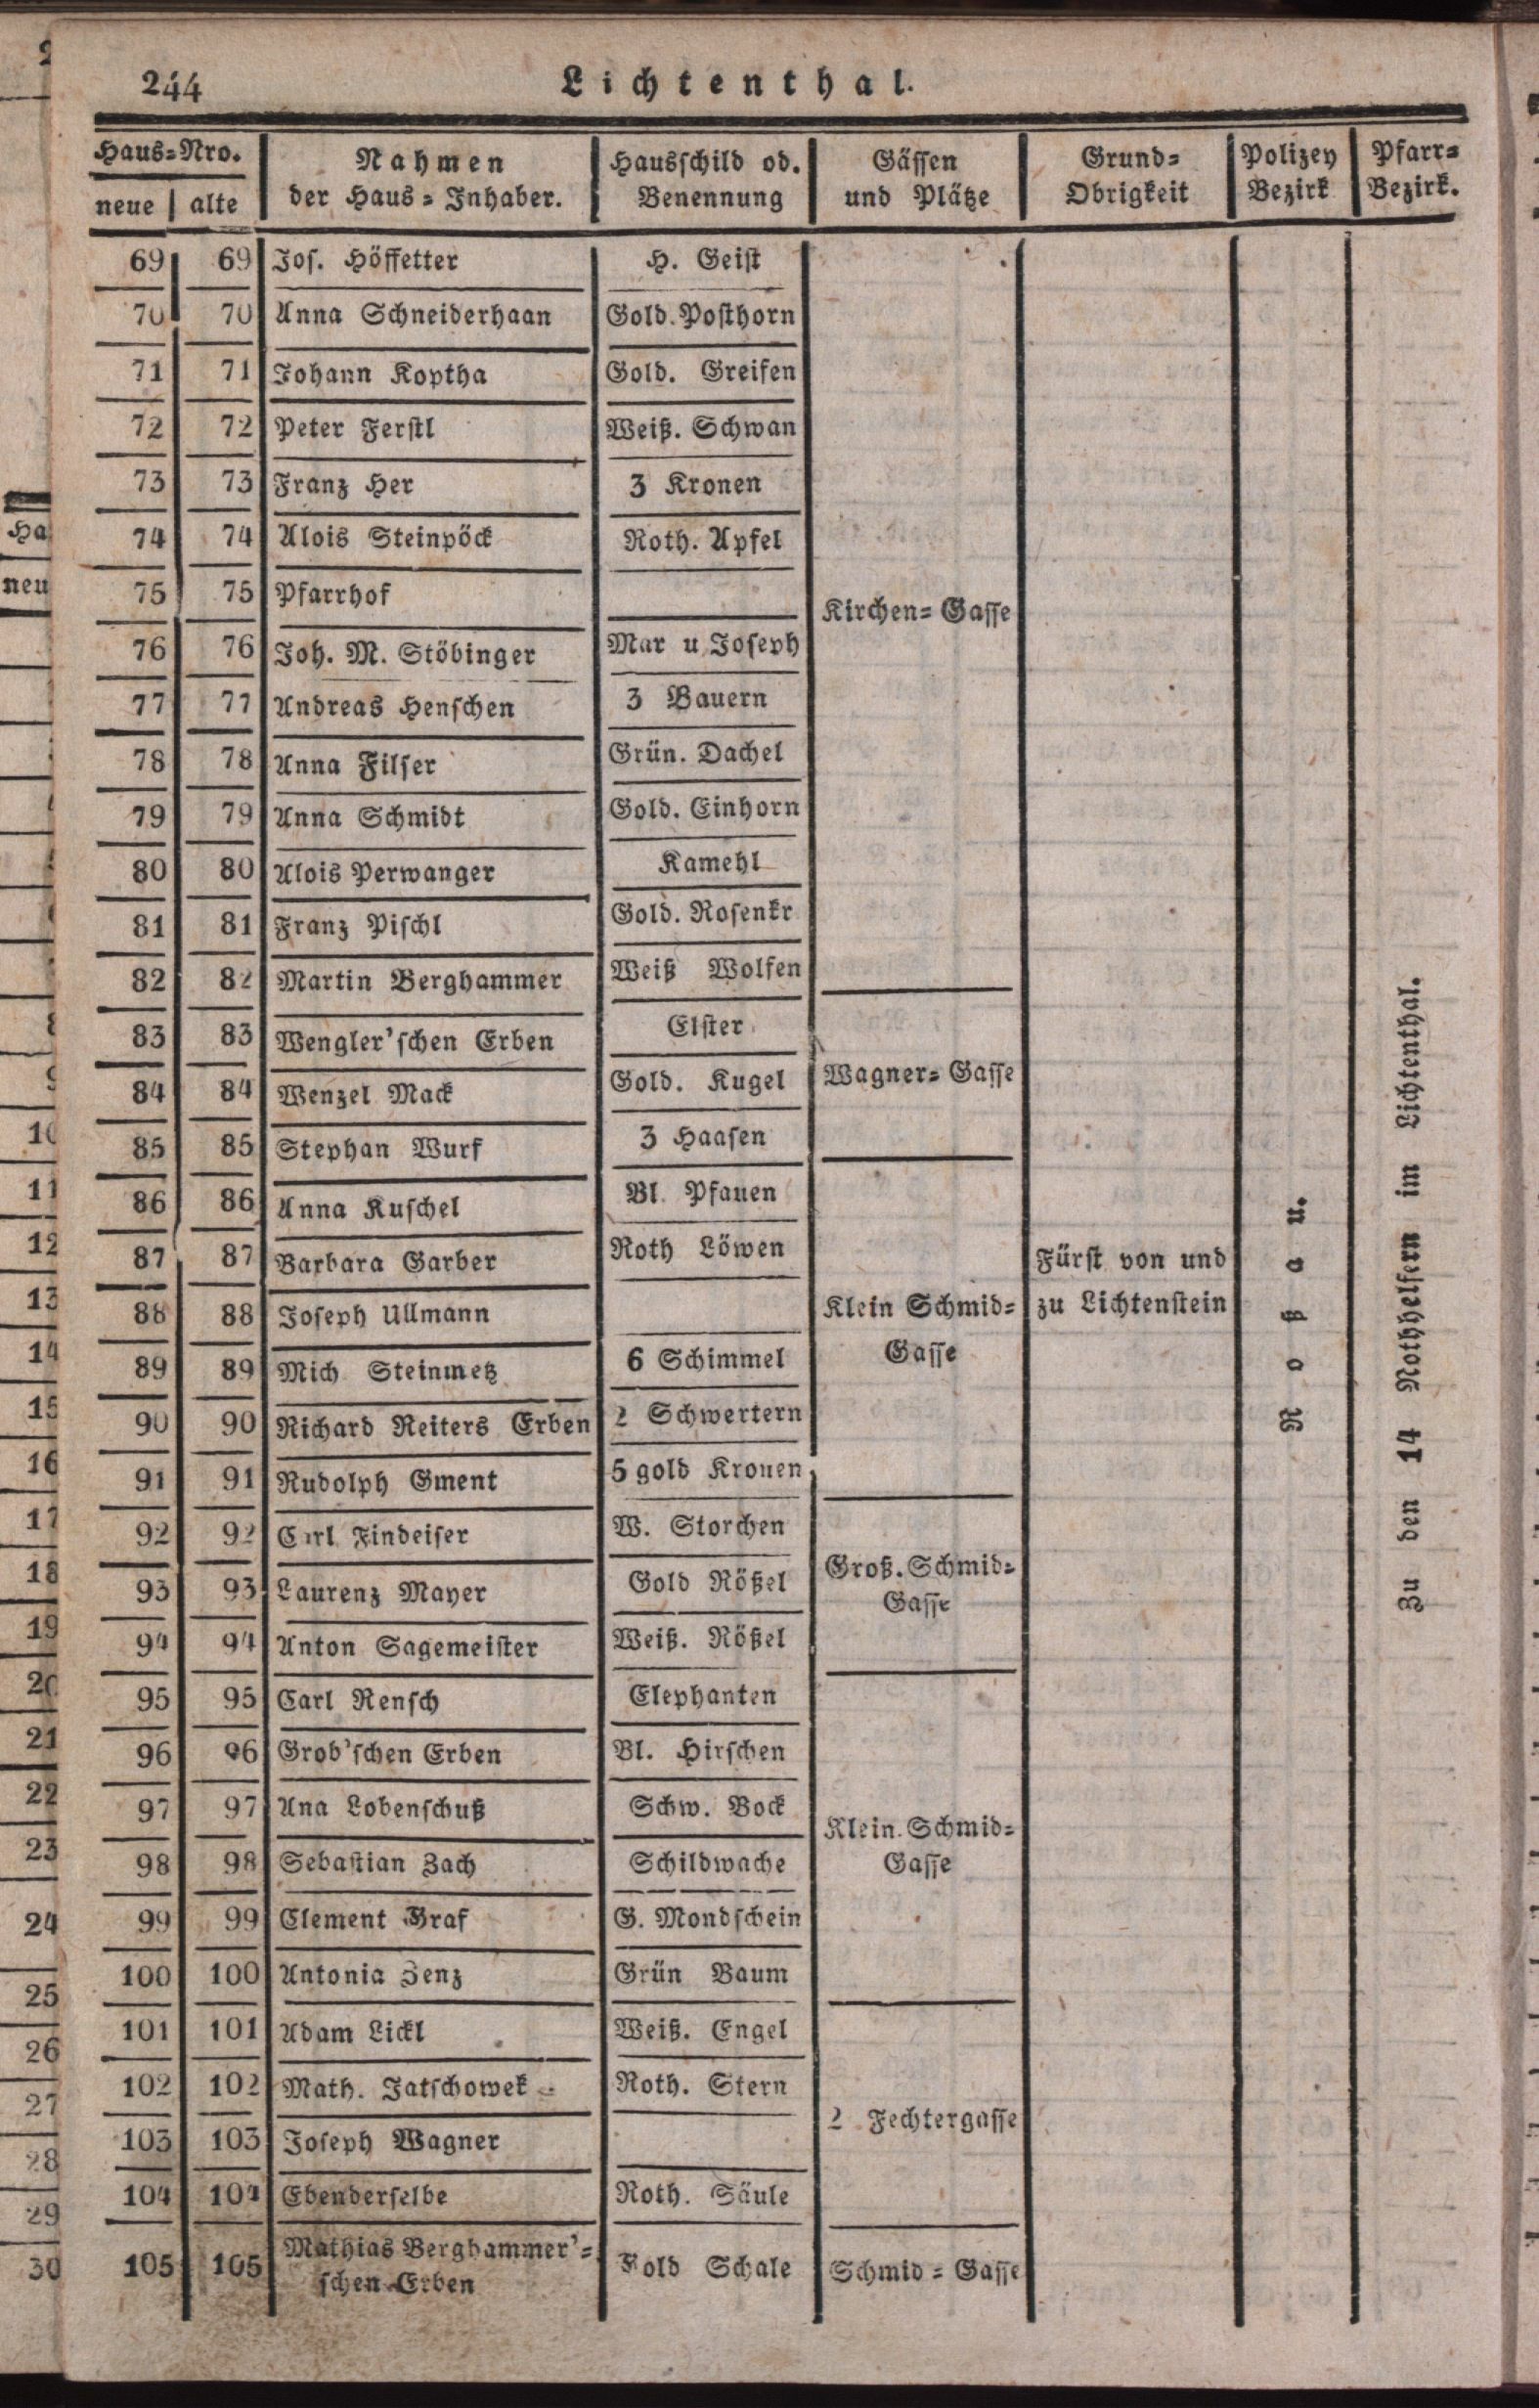 244 Lichtenthal.
Haus=Nro. Nahmen Hausschild od. Gässen Grund= Polizey Pfarr=
neue alte der Haus=Inhaber. Benennung und Plätze Obrigkeit Bezirk Bezirk.
69 69 Jos. Höffetter H. Geist
70 70 Anna Schneiderhaan Gold. Posthorn
71 71 Johann Koptha Gold. Greifen
72 72 Peter Ferstl Weiß. Schwan
73 73 Franz Her 3 Kronen
74 74 Alois Steinpöck Roth. Apfel
75 75 Pfarrhof
Kirchen=Gasse
76 76 Joh. M. Stöbinger Mar u Joseph
77 77 Andreas Henschen 3 Bauern
78 78 Anna Filser Grün. Dachel
79 79 Anna Schmidt Gold. Einhorn
80 80 Alois Perwanger Kamehl
81 81 Franz Pischl Gold. Rosenkr
82 82 Martin Berghammer Weiß Wolfen
83 83 Wengler'schen Erben Elster
84 84 Wenzel Mack Gold. Kugel Wagner=Gasse
85 85 Stephan Wurf 3 Haasen
86 86 Anna Kuschel Bl. Pfauen
87 87 Barbara Garber Roth Löwen Fürst von und
88 88 Joseph Ullmann Klein Schmid= zu Lichtenstein
89 89 Mich Steinmetz 6 Schimmel Gasse
90 90 Richard Reiters Erben 2 Schwertern
91 91 Rudolph Gment 5 gold Kronen
92 92 Carl Findeiser W. Storchen
93 93 Laurenz Mayer Gold Rößel Groß. Schmid=
Gasse
94 94 Anton Sagemeister Weiß. Rößel
95 95 Carl Rensch Elephanten
96 96 Grob'schen Erben Bl. Hirschen
97 97 Ana Lobenschuß Schw. Bock Klein. Schmid=
98 98 Sebastian Zach Schildwache Gasse
99 99 Clement Graf G. Mondschein
100 100 Antonia Zenz Grün Baum
101 101 Adam Lickl Weiß. Engel
102 102 Math. Jatschowek Roth. Stern
2 Fechtergasse
103 103 Joseph Wagner
104 104 Ebenderselbe Roth. Säule
105 105 Mathias Berghammer'= Gold Schale Schmid=Gasse
schen Erben
Roßau.
Zu den 14 Nothhelfern im Lichtenthal.
Ha
neu
10
11
12
13
14
15
16
17
18
19
20
21
22
23
24
25
26
27
28
29
30